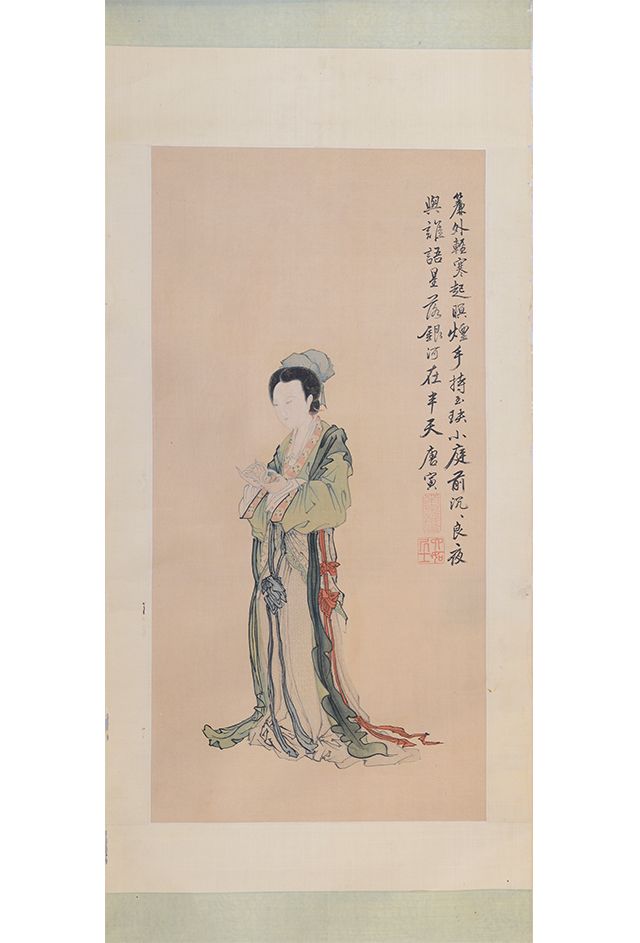 簾外輕寒起暝煙手持玉玦小庭前沉々良夜
與誰語星落銀河在半天唐寅
六如居士